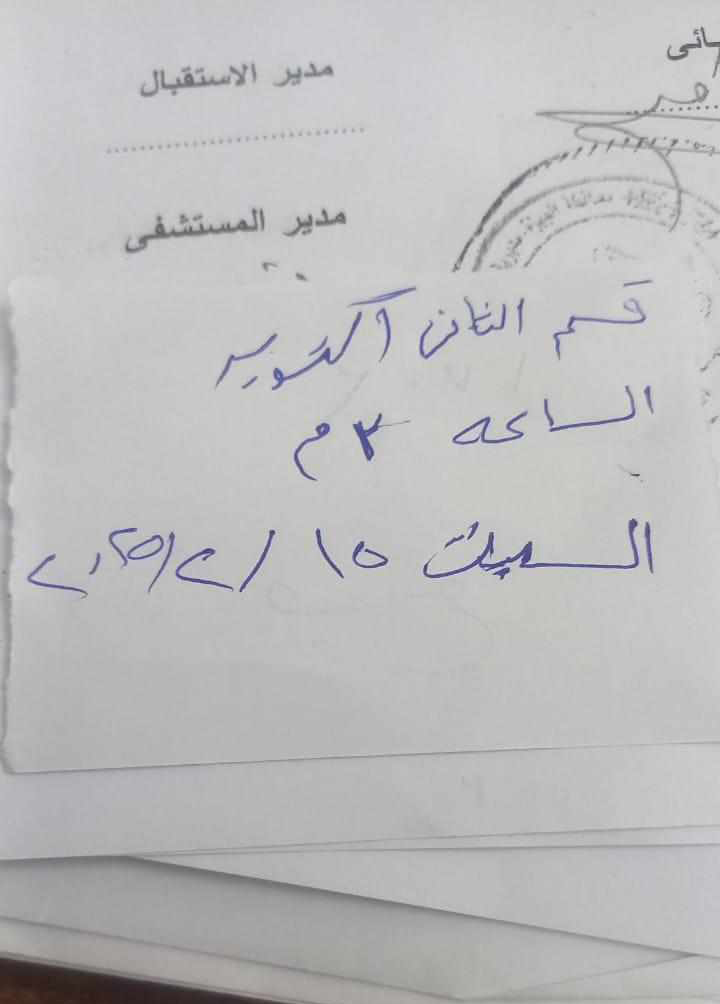 ـائى
مدير الاستقبال
مدير المستشفى
قسم الثاني أكتوبر
الساعه ٣ م
السبت ١٥ / ٢ / ٢٠٢٥